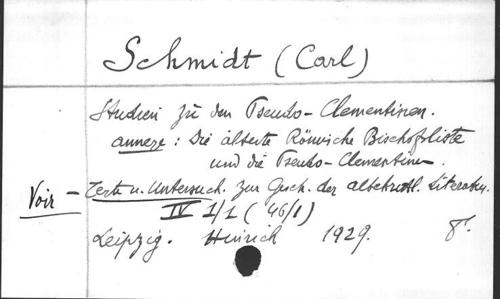 Schmidt (Carl)
Studien zu den Pseudo-Clementinen.
annexe : Die älteste Römische Bischofsliste
und die Pseudo-Clementinen.
Voir - Texte u. Untersuch. zur Gesch. der altchristl. Literatur.
IV 1/1 (46/1)
Leipzig. Hinrich 1929. 8°.